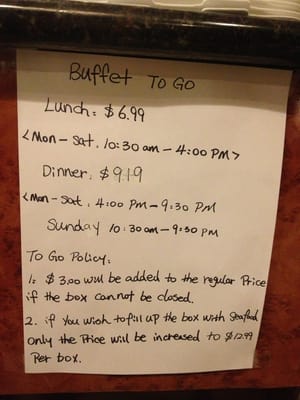 Buffet TO GO
Lunch: $6.99
<Mon - Sat. 10:30 am - 4:00 PM>
Dinner: $9.19
<Mon - Sat. 4:00 PM - 9:30 PM
Sunday 10:30am - 9:30 PM
To Go Policy:
1: $3.00 will be added to the regular Price
if the box cannot be closed.
2. if you wish to fill up the box with Seafood
only the Price will be increased to $12.99
Per box.